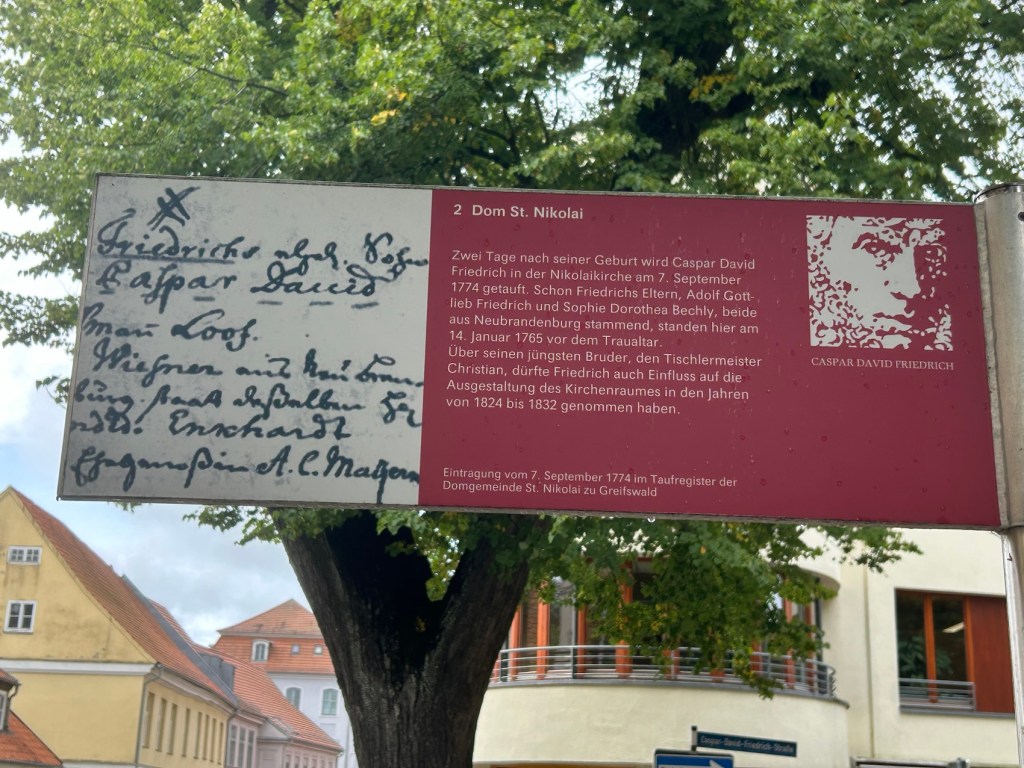 Friedrichs
Caspar David
2 Dom St. Nikolai
Zwei Tage nach seiner Geburt wird Caspar David
Friedrich in der Nikolaikirche am 7. September
1774 getauft. Schon Friedrichs Eltern, Adolf Gott-
lieb Friedrich und Sophie Dorothea Bechly, beide
aus Neubrandenburg stammend, standen hier am
14. Januar 1765 vor dem Traualtar.
Über seinen jüngsten Bruder, den Tischlermeister
Christian, dürfte Friedrich auch Einfluss auf die
Ausgestaltung des Kirchenraumes in den Jahren
von 1824 bis 1832 genommen haben.
Eintragung vom 7. September 1774 im Taufregister der
Domgemeinde St. Nikolai zu Greifswald
CASPAR DAVID FRIEDRICH
Caspar-David-Friedrich-Straße